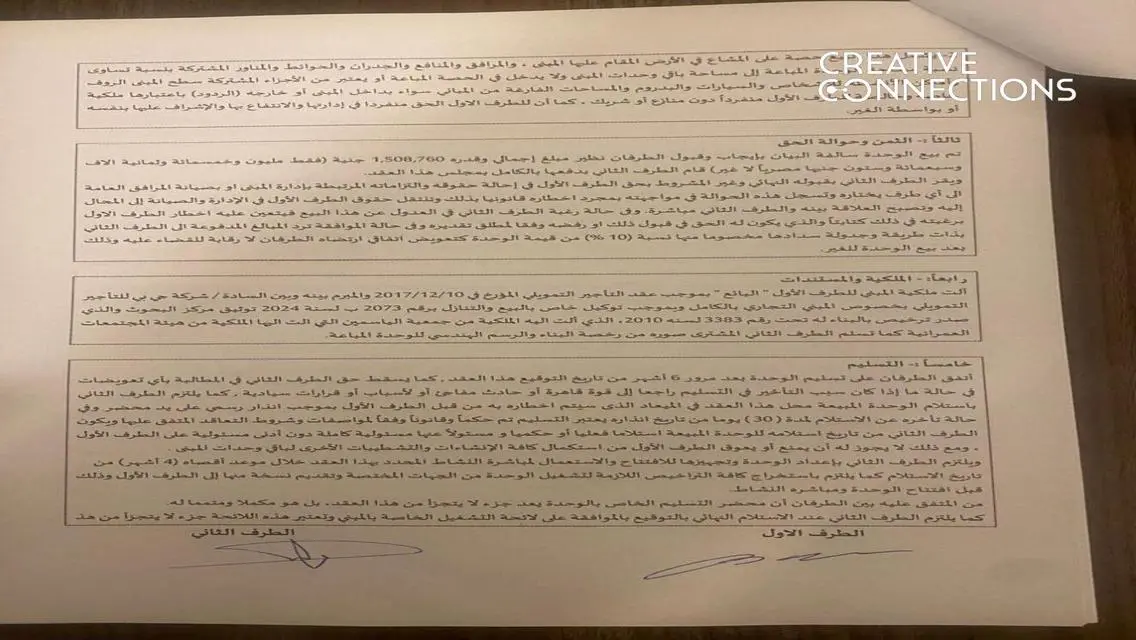 CREATIVE
CONNECTIONS
حصة على المشاع في الأرض المقام عليها المبنى ، والمرافق والمنافع والجدران والحوائط والمناور المشتركة بنسبة تساوى
المباعة إلى مساحة باقي وحدات المبنى ولا يدخل في الحصة المباعة أو يعتبر من الأجزاء المشتركة سطح المبنى الروف
والسيارات والبدروم والمساحات الفارغة من المباني سواء بداخل المبنى أو خارجه (الردود) باعتبارها ملكية
الأول منفرداً دون منازع أو شريك ، كما أن للطرف الاول الحق منفردا في إدارتها والانتفاع بها والإشراف عليها بنفسه
أو بواسطة الغير.
ثالثاً :- الثمن وحوالة الحق
تم بيع الوحدة سالفة البيان بإيجاب وقبول الطرفان نظير مبلغ إجمالي وقدره 1,508,760 جنية (فقط مليون وخمسمائة وثمانية الاف
وسبعمائة وستون جنيها مصرياً لا غير) قام الطرف الثاني بدفعها بالكامل بمجلس هذا العقد.
ويقر الطرف الثاني بقبوله النهائي وغير المشروط بحق الطرف الأول في إحالة حقوقه والتزاماته المرتبطة بإدارة المبنى او بصيانة المرافق العامة
الى أي طرف يختاره وتسجل هذه الحوالة في مواجهته بمجرد اخطاره قانونيا بذلك وتنتقل حقوق الطرف الأول في الإدارة والصيانة إلى المحال
إليه وتصبح العلاقة بينه والطرف الثاني مباشرة. وفى حالة رغبة الطرف الثاني في العدول عن هذا البيع فيتعين عليه اخطار الطرف الاول
برغبته في ذلك كتابتاً والذي يكون له الحق في قبول ذلك او رفضه وفقا لمطلق تقديره وفى حالة الموافقة ترد المبالغ المدفوعة الى الطرف الثاني
بذات طريقة وجدولة سدادها مخصوما منها نسبة (10 %) من قيمة الوحدة كتعويض اتفاقي ارتضاه الطرفان لا رقابة للقضاء عليه وذلك
بعد بيع الوحدة للغير.
رابعاً:- الملكية والمستندات
آلت ملكية المبنى للطرف الأول " البائع " بموجب عقد التأجير التمويلي المؤرخ في 2017/12/10 والمبرم بينه وبين السادة / شركة جي بي للتأجير
التمويلي بخصوص المبنى التجاري بالكامل وبموجب توكيل خاص بالبيع والتنازل برقم 2073 ب لسنة 2024 توثيق مركز البحوث والذي
صدر ترخيص بالبناء له تحت رقم 3383 لسنه 2010، الذي آلت اليه الملكية من جمعية الياسمين التي الت اليها الملكية من هيئة المجتمعات
العمرانية كما تسلم الطرف الثاني المشترى صوره من رخصة البناء والرسم الهندسي للوحدة المباعة.
خامساً :- التسليم
أتفق الطرفان على تسليم الوحدة بعد مرور 6 أشهر من تاريخ التوقيع هذا العقد ، كما يسقط حق الطرف الثاني في المطالبة بأي تعويضات
في حالة ما إذا كان سبب التأخير في التسليم راجعا إلى قوة قاهرة أو حادث مفاجئ أو لأسباب أو قرارات سيادية ، كما يلتزم الطرف الثاني
باستلام الوحدة المبيعة محل هذا العقد في الميعاد الذى سيتم اخطاره به من قبل الطرف الأول بموجب انذار رسمي على يد محضر وفي
حالة تأخره عن الاستلام لمدة ( 30 ) يوما من تاريخ انذاره يعتبر التسليم تم حكماً وقانوناً وفقاً لمواصفات وشروط التعاقد المتفق عليها ويكون
الطرف الثاني من تاريخ استلامه للوحدة المبيعة استلاما فعليا أو حكميا و مسئولاً عنها مسئولية كاملة دون أدنى مسئولية على الطرف الأول
، ومع ذلك لا يجوز له أن يمنع أو يعوق الطرف الأول من استكمال كافة الإنشاءات والتشطيبات الأخرى لباقي وحدات المبنى .
ويلتزم الطرف الثاني بإعداد الوحدة وتجهيزها للافتتاح والاستعمال لمباشرة النشاط المحدد بهذا العقد خلال موعد أقصاه (4 أشهر) من
تاريخ الاستلام كما يلتزم باستخراج كافة التراخيص اللازمة لتشغيل الوحدة من الجهات المختصة وتقديم نسخة منها إلى الطرف الأول وذلك
قبل افتتاح الوحدة ومباشره النشاط.
من المتفق عليه بين الطرفان أن محضر التسليم الخاص بالوحدة يعد جزء لا يتجزأ من هذا العقد، بل هو مكملا ومتمما له.
كما يلتزم الطرف الثاني عند الاستلام النهائي بالتوقيع بالموافقة على لائحة التشغيل الخاصة بالمبنى وتعتبر هذه اللائحة جزء لا يتجزأ من هذ
الطرف الاول
الطرف الثاني